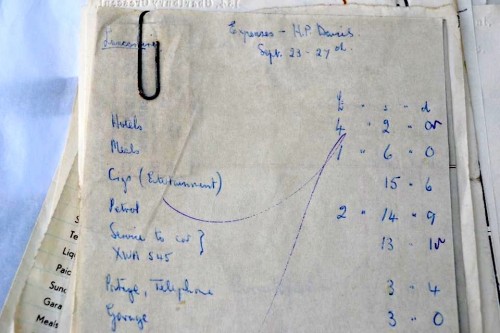 Expenses - H.P. Davis.
Sept. 23 - 27
£ " s " d
Hotels 4 " 2 " 0
Meals 1 " 6 " 0
Cigs (Entertainment) 15 " 6
Petrol 2 " 14 " 9
Service to car } 13 "
XWA 545
Postage, Telephone 3 " 4
Garage 3 " 0
S
Te
Liq
Paid
Sund
Gara
Meals